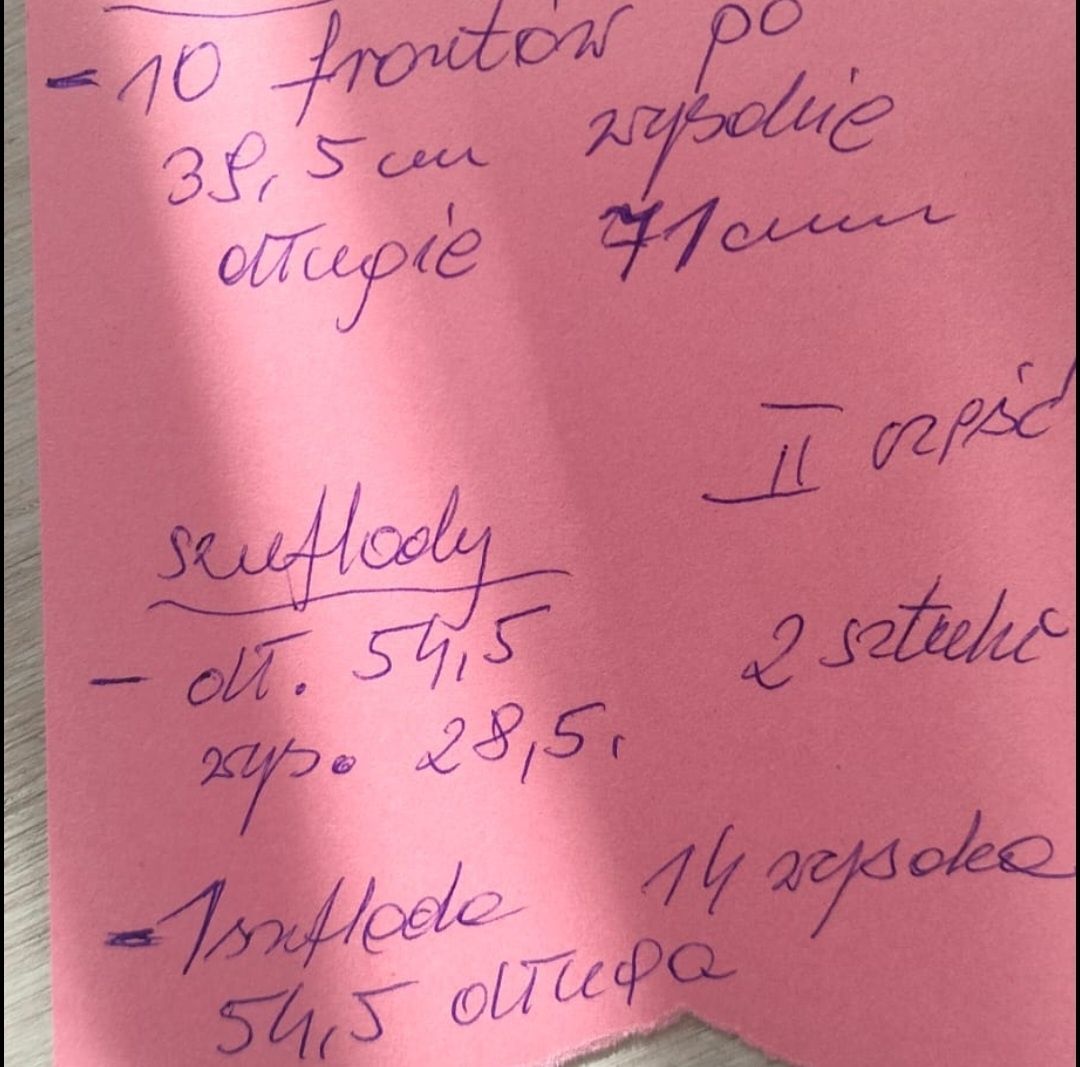 - 10 frontów po
39,5 cm wysokie
długie 71 cm
II część
szuflady
- dł. 54,5 2 sztuki
wys. 28,5.
- 1 szuflada 14 wysoka
54,5 długa